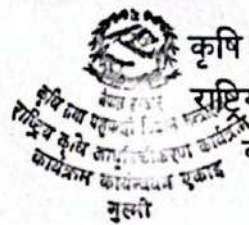 कृषि
राष्ट्रि
नेपाल सरकार
कृषि तथा पशुपन्छी विकास
राष्ट्रिय कृषि आधुनिकीकरण कार्यक्रम
कार्यक्रम कार्यान्वयन एकाइ
गुल्मी